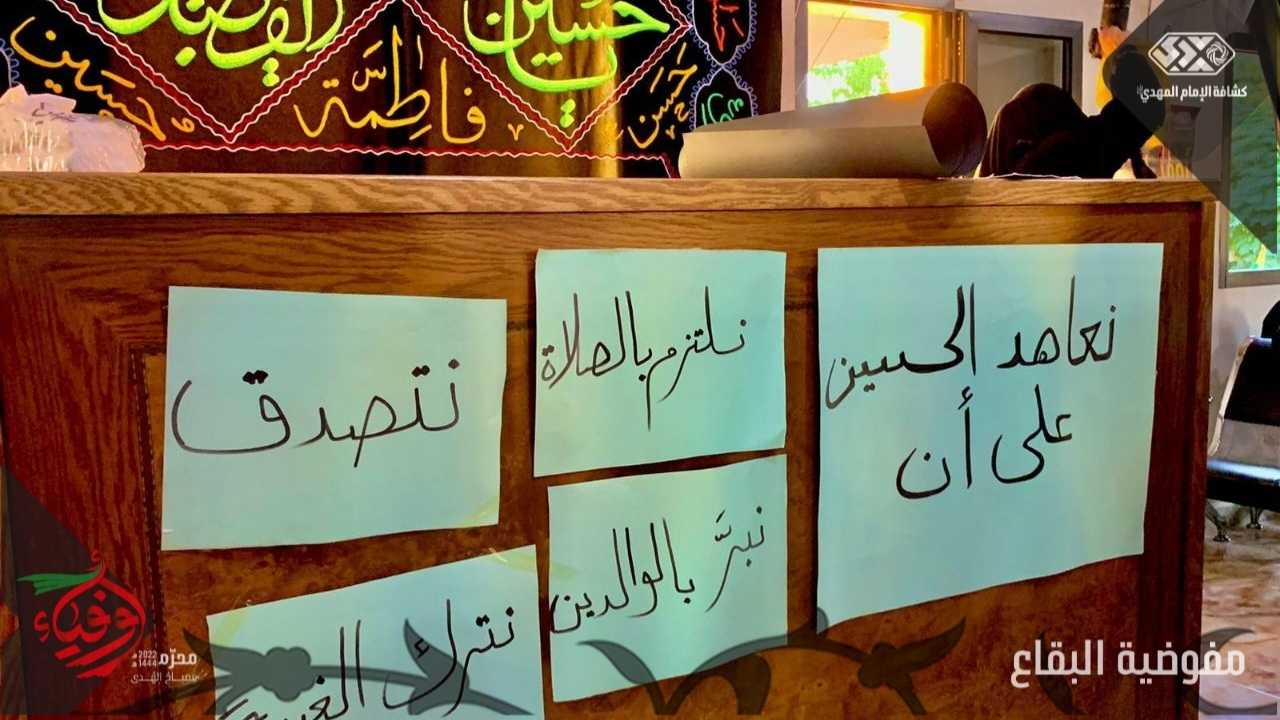 حسين
يا حسين
فاطمة
حسن
حسين
كشافة الإمام المهدي
نعاهد الحسين
على أن
نلتزم بالصلاة
نتصدق
نبرَّ بالوالدين
نترك
أوفياء
محرّم
2022
1444
مفوضية البقاع